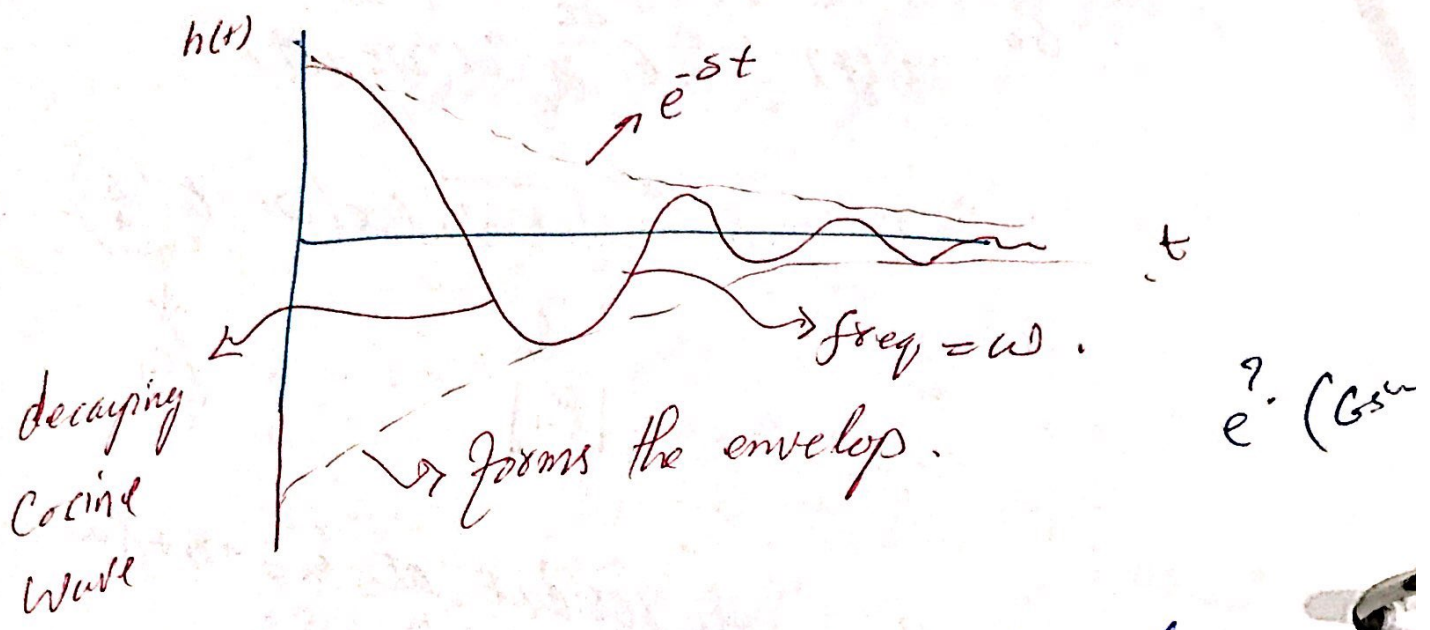 h(t)
e^-δt
t
freq = ω .
decaying
Cocine
wave
forms the envelop.
e^?. (Cos